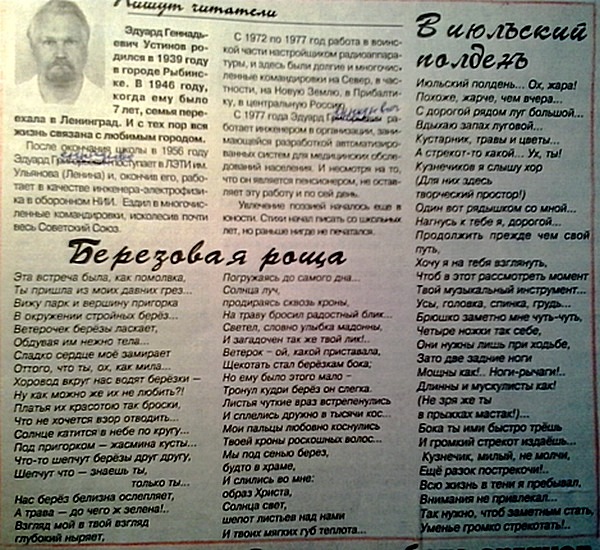 Пишут читатели
Эдуард Геннадь-
евич Устинов ро-
дился в 1939 году
в городе Рыбинс-
ке. В 1946 году,
когда ему было
7 лет, семья пере-
ехала в Ленинград. И с тех пор вся
жизнь связана с любимым городом.
После окончания школы в 1956 году
Эдуард поступает в ЛЭТИ им.
Ульянова (Ленина) и, окончив его, рабо-
тает в качестве инженера-электрофизи-
ка в оборонном НИИ. Ездил в многочис-
ленные командировки, исколесив почти
весь Советский Союз.
С 1972 по 1977 год работа в воинс-
кой части настройщиком радиоаппара-
туры, и здесь были долгие и многочис-
ленные командировки на Север, в час-
тности, на Новую Землю, в Прибалти-
ку, в центральную Россию.
С 1977 года Эдуард ра-
ботает инженером в организации, зани-
мающейся разработкой автоматизиро-
ванных систем для медицинских обсле-
дований населения. И несмотря на то,
что он является пенсионером, не остав-
ляет эту работу и по сей день.
Увлечение поэзией началось еще в
юности. Стихи начал писать со школьных
лет, но раньше нигде не печатался.
Березовая роща
Эта встреча была, как помолвка,
Ты пришла из моих давних грез...
Вижу парк и вершину пригорка
В окружении стройных берёз...
Ветерочек берёзы ласкает,
Обдувая им нежно тела...
Сладко сердце моё замирает
Оттого, что ты, ох, как мила...
Хоровод вкруг нас водят берёзки —
Ну как можно же их не любить?!
Платья их красотою так броски,
Что не хочется взор отводить...
Солнце катится в небе по кругу...
Под пригорком – жасмина кусты...
Что-то шепчут берёзы друг другу,
Шепчут что — знаешь ты,
только ты...
Нас берёз белизна ослепляет,
А трава — до чего ж зелена!..
Взгляд мой в твой взгляд
глубокий ныряет,
Погружаясь до самого дна...
Солнца луч,
продираясь сквозь кроны,
На траву бросил радостный блик...
Светел, словно улыбка мадонны,
И загадочен так же твой лик!..
Ветерок – ой, какой приставала,
Щекотать стал берёзкам бока;
Но ему было этого мало -
Тронул кудри берёз он слегка.
Листья чуткие враз встрепенулись
И сплелись дружно в тысячи кос...
Мои пальцы любовно коснулись
Твоей кроны роскошных волос...
Мы под сенью берез,
будто в храме,
И слились во мне:
образ Христа,
Солнца свет,
шепот листьев над нами
И твоих мягких губ теплота...
В июльский
полдень
Июльский полдень... Ох, жара!
Похоже, жарче, чем вчера...
С дорогой рядом луг большой...
Вдыхаю запах луговой...
Кустарник, травы и цветы...
А стрекот-то какой... Ух, ты!
Кузнечиков я слышу хор
(Для них здесь
творческий простор!)
Один вот рядышком со мной...
Нагнусь к тебе я, дорогой...
Продолжить прежде чем свой
путь,
Хочу я на тебя взглянуть,
Чтоб в этот рассмотреть момент
Твой музыкальный инструмент...
Усы, головка, спинка, грудь...
Брюшко заметно мне чуть-чуть,
Четыре ножки так себе,
Они нужны лишь при ходьбе,
Зато две задние ноги
Мощны как!.. Ноги-рычаги!..
Длинны и мускулисты как!
(Не зря же ты
в прыжках мастак!)...
Бока ты ими быстро трёшь
И громкий стрекот издаёшь...
Кузнечик, милый, не молчи,
Ещё разок пострекочи!..
Всю жизнь в тени я пребывал,
Внимания не привлекал...
Так нужно, чтоб заметным стать,
Уменье громко стрекотать!..